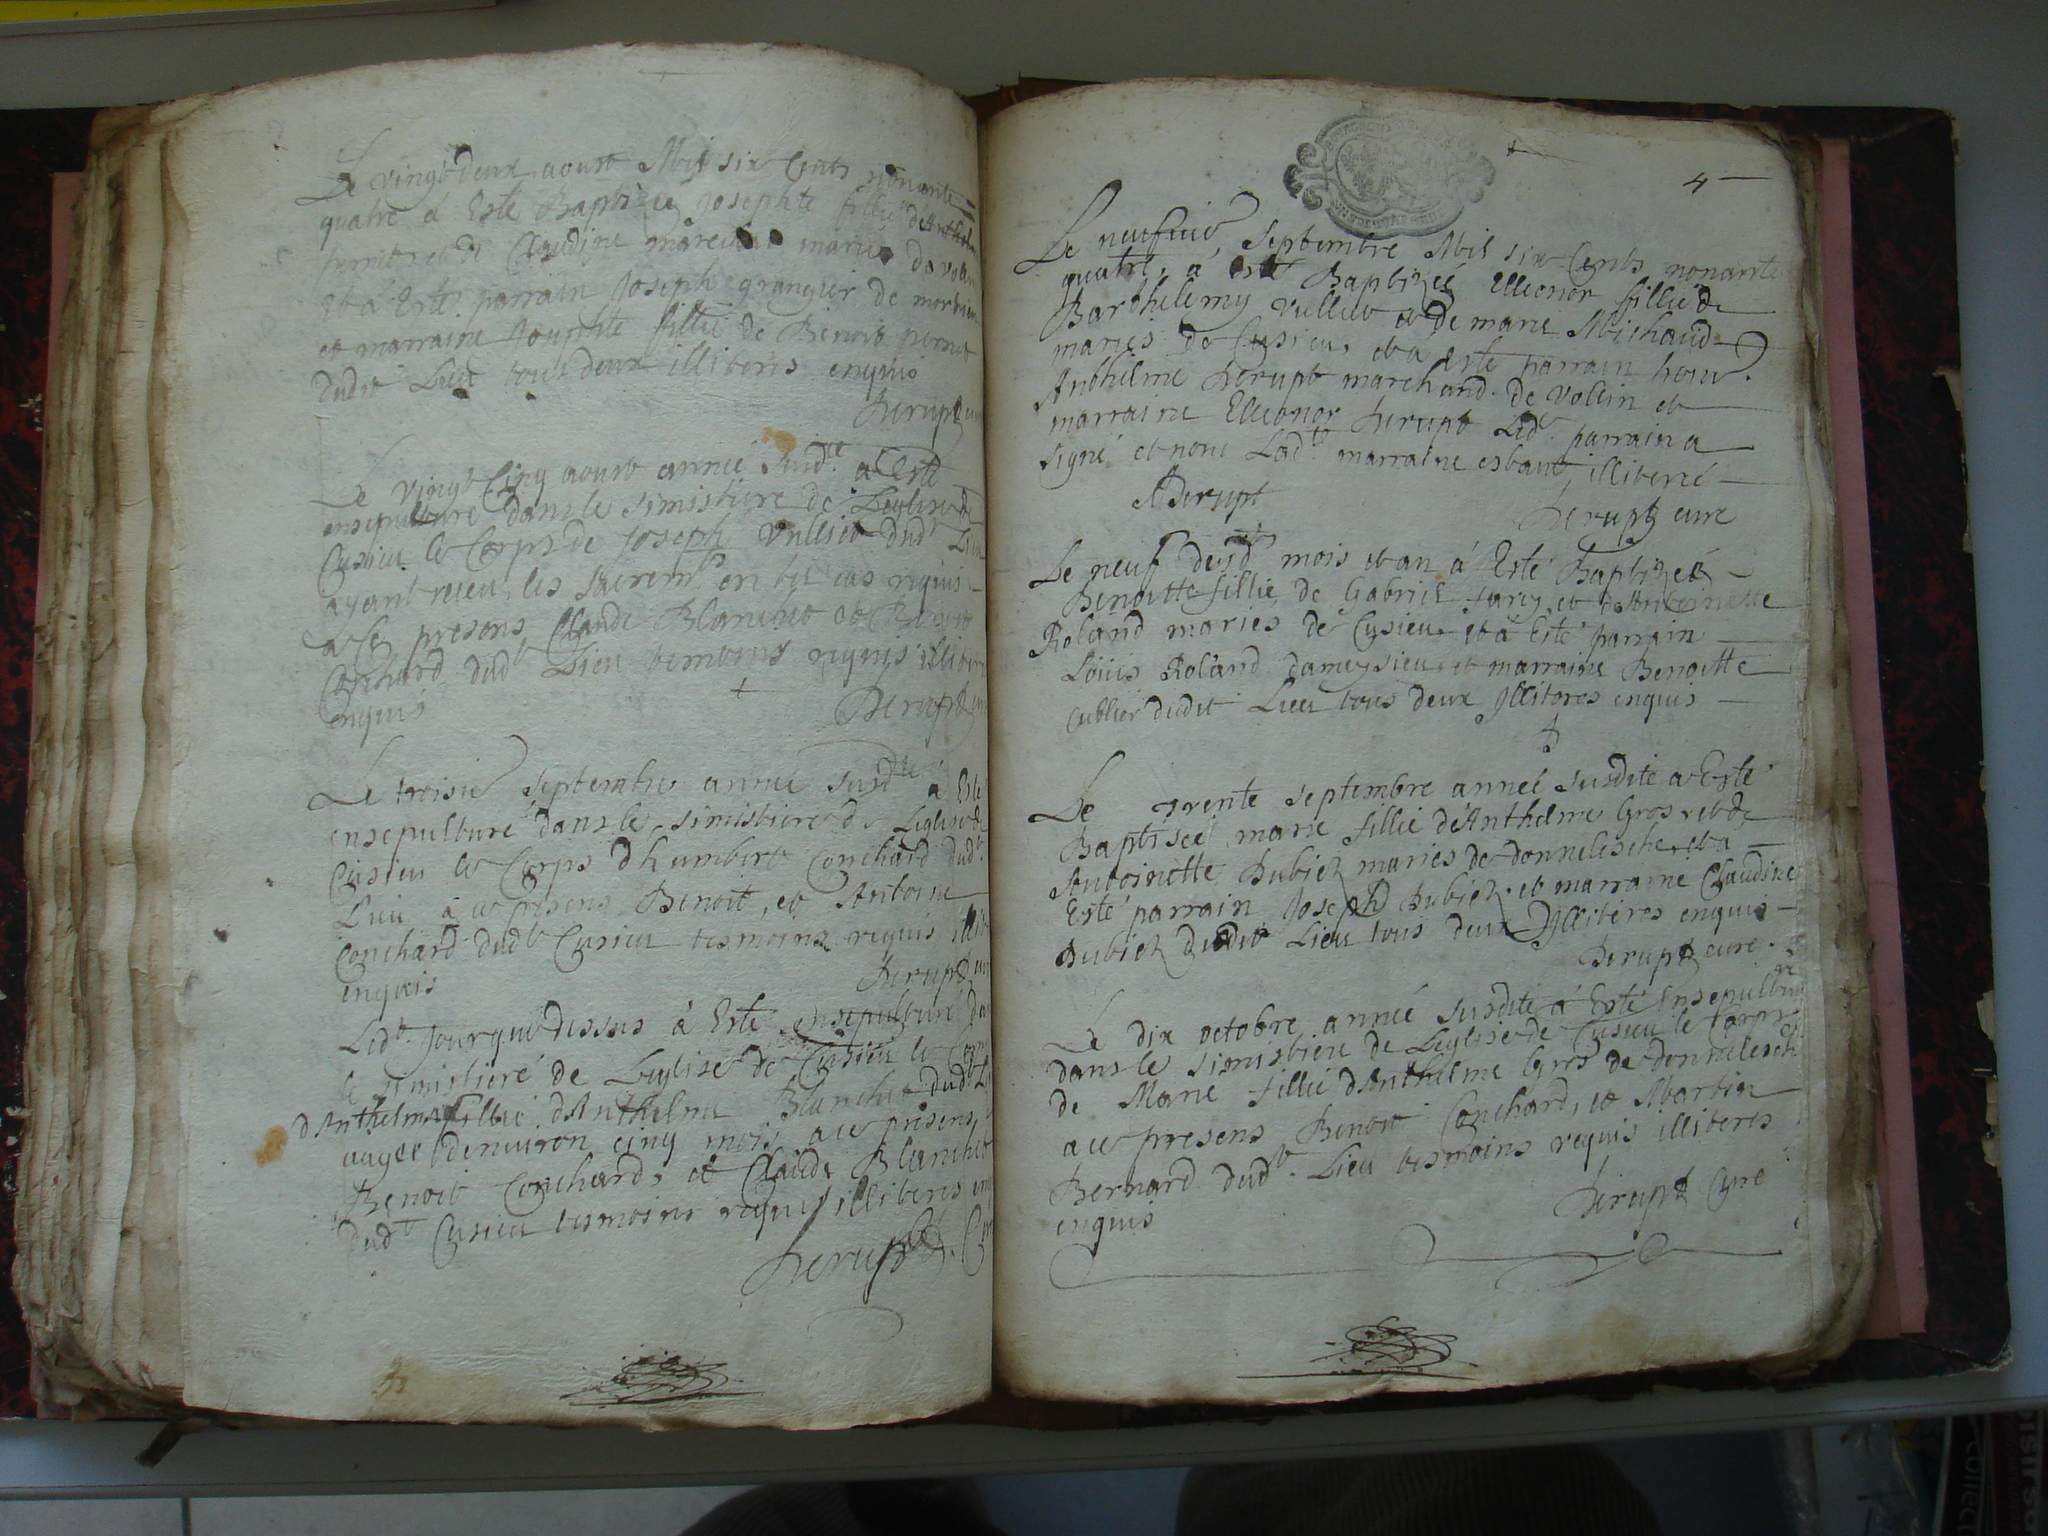 Le vingt deux aoust Mil six Cents nonante
quatre a Esté Baptizée Josephte fillie d'Anthelme
et de Claudine mariés de volin
et a Esté parrain Joseph grangier de
et marraine Josephte fillie de Benoit pernet
dudit Lieu tous deux illiteres enquis
Derupt cure
Le vingt Cinq aoust année susd.te a Esté
ensepulturé dans le simistiere de Leglise de
Cusieu le Corps de Joseph Vulliet dud.t Lieu
ayant receu les sacrem.ts en tel cas requis
a ce presens Claude Blanchet et Benoit
Conchard dud.t Lieu temoins requis illiteres
enquis
Derupt cure
Le troisie septembre année susd.te a Esté
ensepulturé dans le simistiere de Leglise de
Cusieu le Corps d'humbert Conchard dud.t
Lieu a ce presens Benoit, et Antoine
Conchard dud.t Cusieu tesmoins requis illit
enquis
Derupt cure
Led.t Jour que dessus à Esté ensepulturé dans
le simistiere de Leglise de Cusieu le Corps
d'Anthelme fillie d'Anthelme Blanchet dud.t Lieu
aagee denviron cinq mois a ce presens
Benoit Conchard, et Claude Blanchet
dud.t Cusieu tesmoins requis illiteres enq
Derupt. Cure
4
Le neufvie Septembre Mil six Cents nonante
quatre, a esté Baptizeé Elleonor fillie de
Barthelemy Vulliet et de marie Michaud
maries de Cusieu, et a esté parrain hon.
Anthelme Derupt marchand de Vollin et
marraine Elleonor Derupt Led.t parrain a
signé et non Lad.te marraine estant illiteré
ADerupt
Derupt cure
Le neuf desd.ts mois et an á Esté Baptizeé
Benoitte fillie de Gabriel Jarcy et d'Antoinette
Roland maries de Cusieu et á Esté parrain
Loüis Roland dameysieu et marraine Benoitte
Cublier dudit Lieu tous deux Jlliteres enquis
Le trente septembre anneé susdite a Esté
Baptiseé marie fillie d'Anthelme Gros et de
Antoinette Dubiez maries de donnelesche et a
Esté parrain Joseph Dubiez et marraine Claudine
Dubiez dudit Lieu tous deux Jlliteres enquis
Derupt cure.
Le dix octobre anneé susdite a Esté Ensepulturé
dans le simistiere de Leglise de Cusieu le Corps
de Marie fillie d'Anthelme Gros de donnelesche
a ce presens Benoit Conchard, et Martin
Bernard dud.t Lieu tesmoins requis illiteres
enquis
Derupt Cure